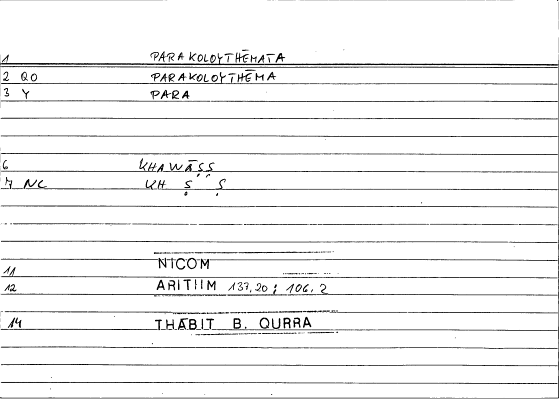 1 PARAKOLOYTHĒMATA
2 QO PARAKOLOYTHĒMA
3 Y PARA
6 KHAWĀṢṢ
7 NC KH Ṣ Ṣ
11 NICOM
12 ARITIIM 137,20; 106,2
14 THĀBIT B. QURRA